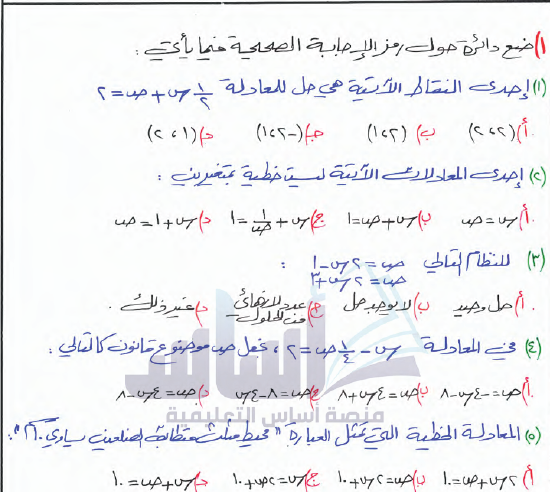 ١) ضع دائرة حول رمز الإجابة الصحيحة فيما يأتي :
(١) إحدى النقاط الآتية هي حل للمعادلة ١/٢ س + ص = ٢
أ) (٢ ، ٢) ب) (٢ ، ١) ج) (-٢ ، ١) د) (١ ، ٢)
(٢) إحدى المعادلات الآتية ليست خطية بمتغيرين :
أ) س = ص ب) س + ص = ١ ج) س + ١/ص = ١ د) س + ١ = ص
(٣) للنظام التالي ص = ٢س - ١
ص = ٢س + ٣ :
أ) حل وحيد ب) لا يوجد حل ج) عدد لا نهائي من الحلول د) غير ذلك .
(٤) في المعادلة س - ١/٤ ص = ٢ ، نجعل ص موضوع قانون كالتالي :
أ) ص = -٤س - ٨ ب) ص = ٤س + ٨ ج) ص = ٨ - ٤س د) ص = ٤س - ٨
أساس
منصة أساس التعليمية
(٥) المعادلة الخطية التي تمثل العبارة " محيط مثلث متطابق الضلعين يساوي ١٠ " :
أ) ٢س + ص = ١٠ ب) ص = ٢س + ١٠ ج) س = ٢ص + ١٠ د) س + ص = ١٠